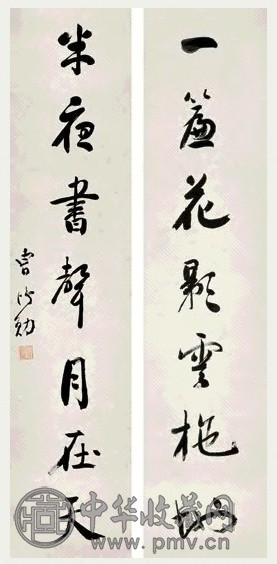 一簾花影雲拖地
半夜書聲月在天
中华收藏网
www.pmv.cn